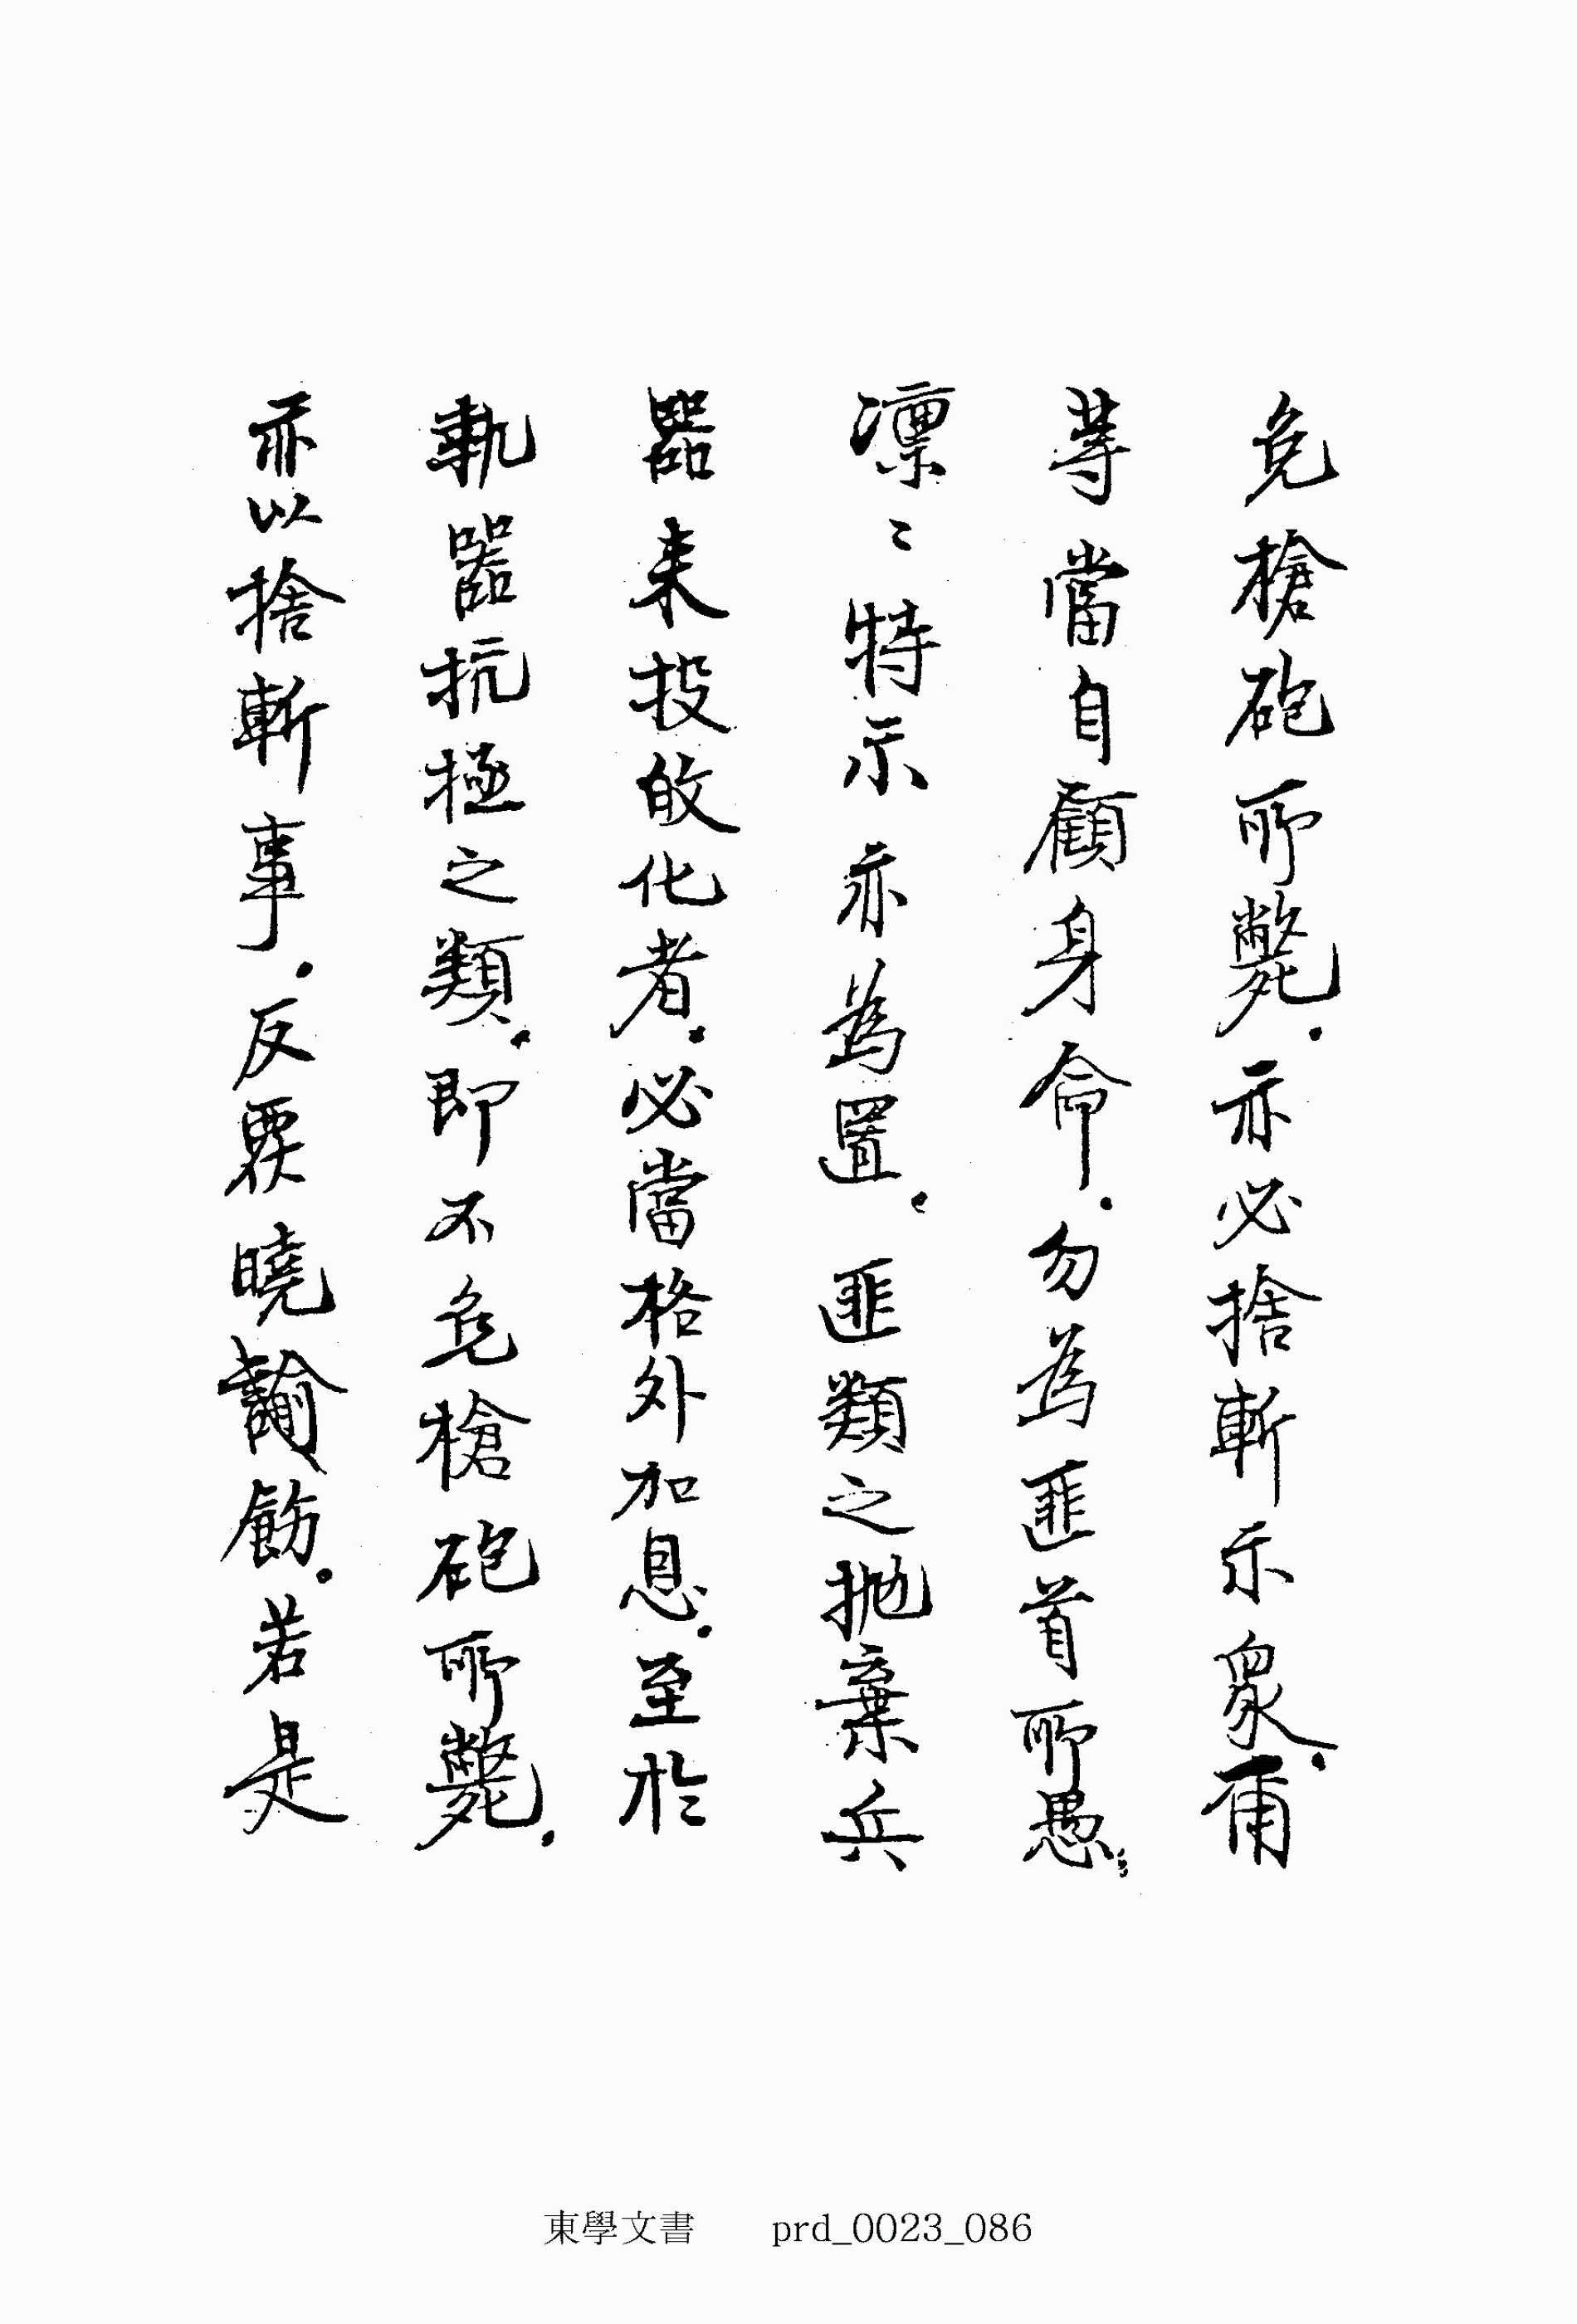 免槍砲所斃.亦必捨斬示衆.甫
等當自顧身命.勿為匪首所愚.
凜〻特示亦為置.匪類之抛棄兵
器来投皈化者.必當格外加恩.至於
執器抗拯之類.即不免槍砲所斃.
亦以捨斬事.反覆曉諭飭.若是
東學文書 prd_0023_086